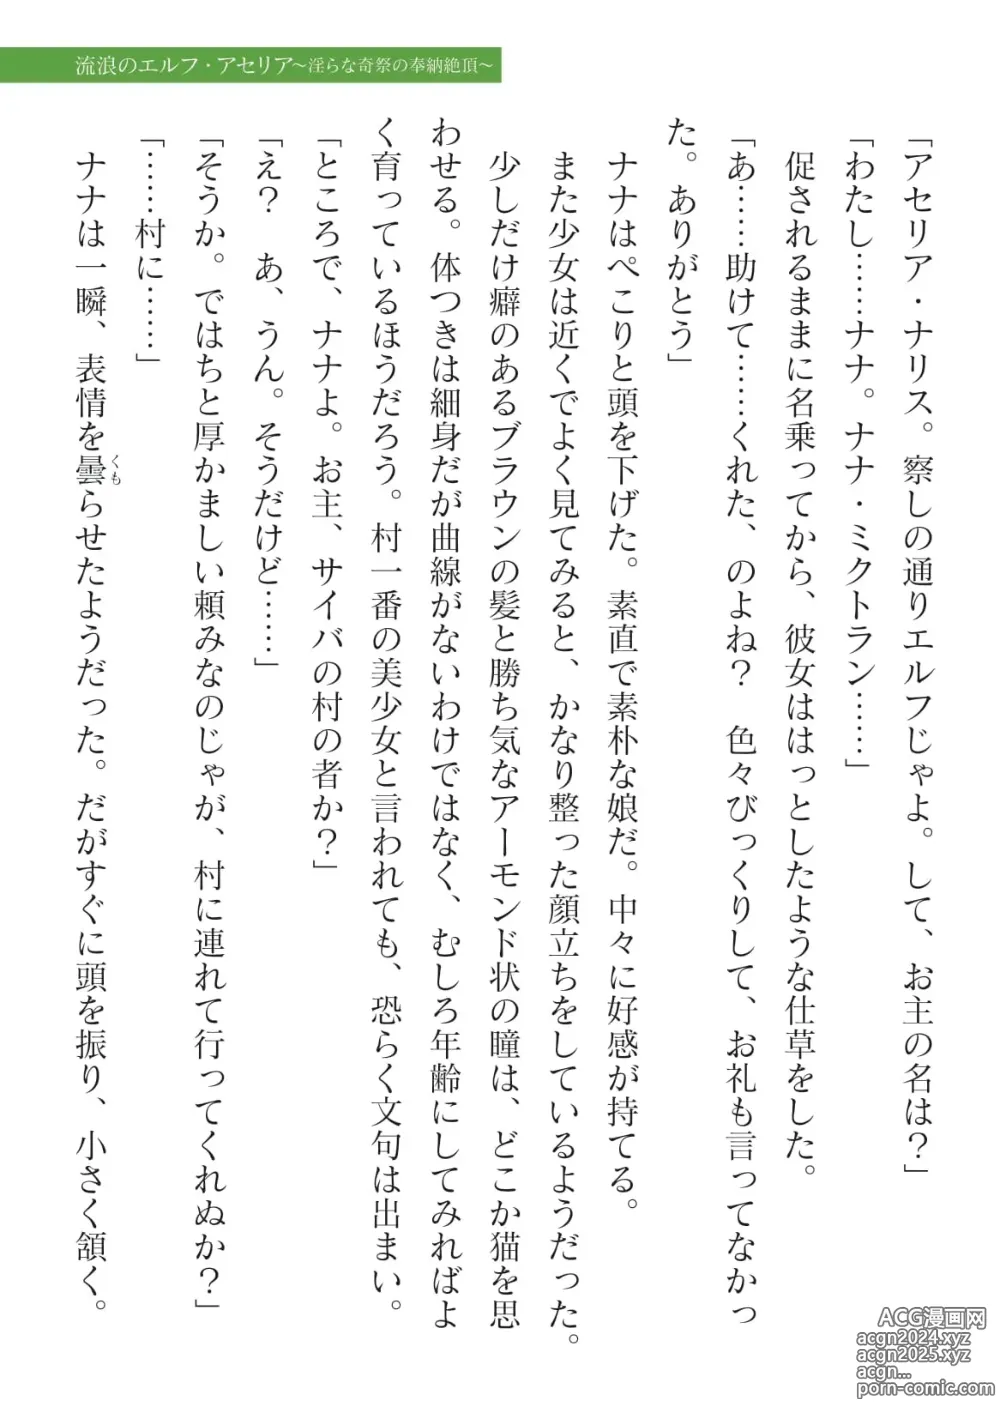 流浪のエルフ・アセリア～淫らな奇祭の奉納絶頂～
「アセリア・ナリス。察しの通りエルフじゃよ。して、お主の名は？」
「わたし……ナナ。ナナ・ミクトラン……」
促されるままに名乗ってから、彼女ははっとしたような仕草をした。
「あ……助けて……くれた、のよね？　色々びっくりして、お礼も言ってなかっ
た。ありがとう」
ナナはぺこりと頭を下げた。素直で素朴な娘だ。中々に好感が持てる。
また少女は近くでよく見てみると、かなり整った顔立ちをしているようだった。
少しだけ癖のあるブラウンの髪と勝ち気なアーモンド状の瞳は、どこか猫を思
わせる。体つきは細身だが曲線がないわけではなく、むしろ年齢にしてみればよ
く育っているほうだろう。村一番の美少女と言われても、恐らく文句は出まい。
「ところで、ナナよ。お主、サイバの村の者か？」
「え？　あ、うん。そうだけど……」
「そうか。ではちと厚かましい頼みなのじゃが、村に連れて行ってくれぬか？」
「……村に……」
ナナは一瞬、表情を曇らせたようだった。だがすぐに頭を振り、小さく頷く。
くも
ACG漫画网
acgn2024.xyz
acgn2025.xyz
acgn...
porn-comic.com